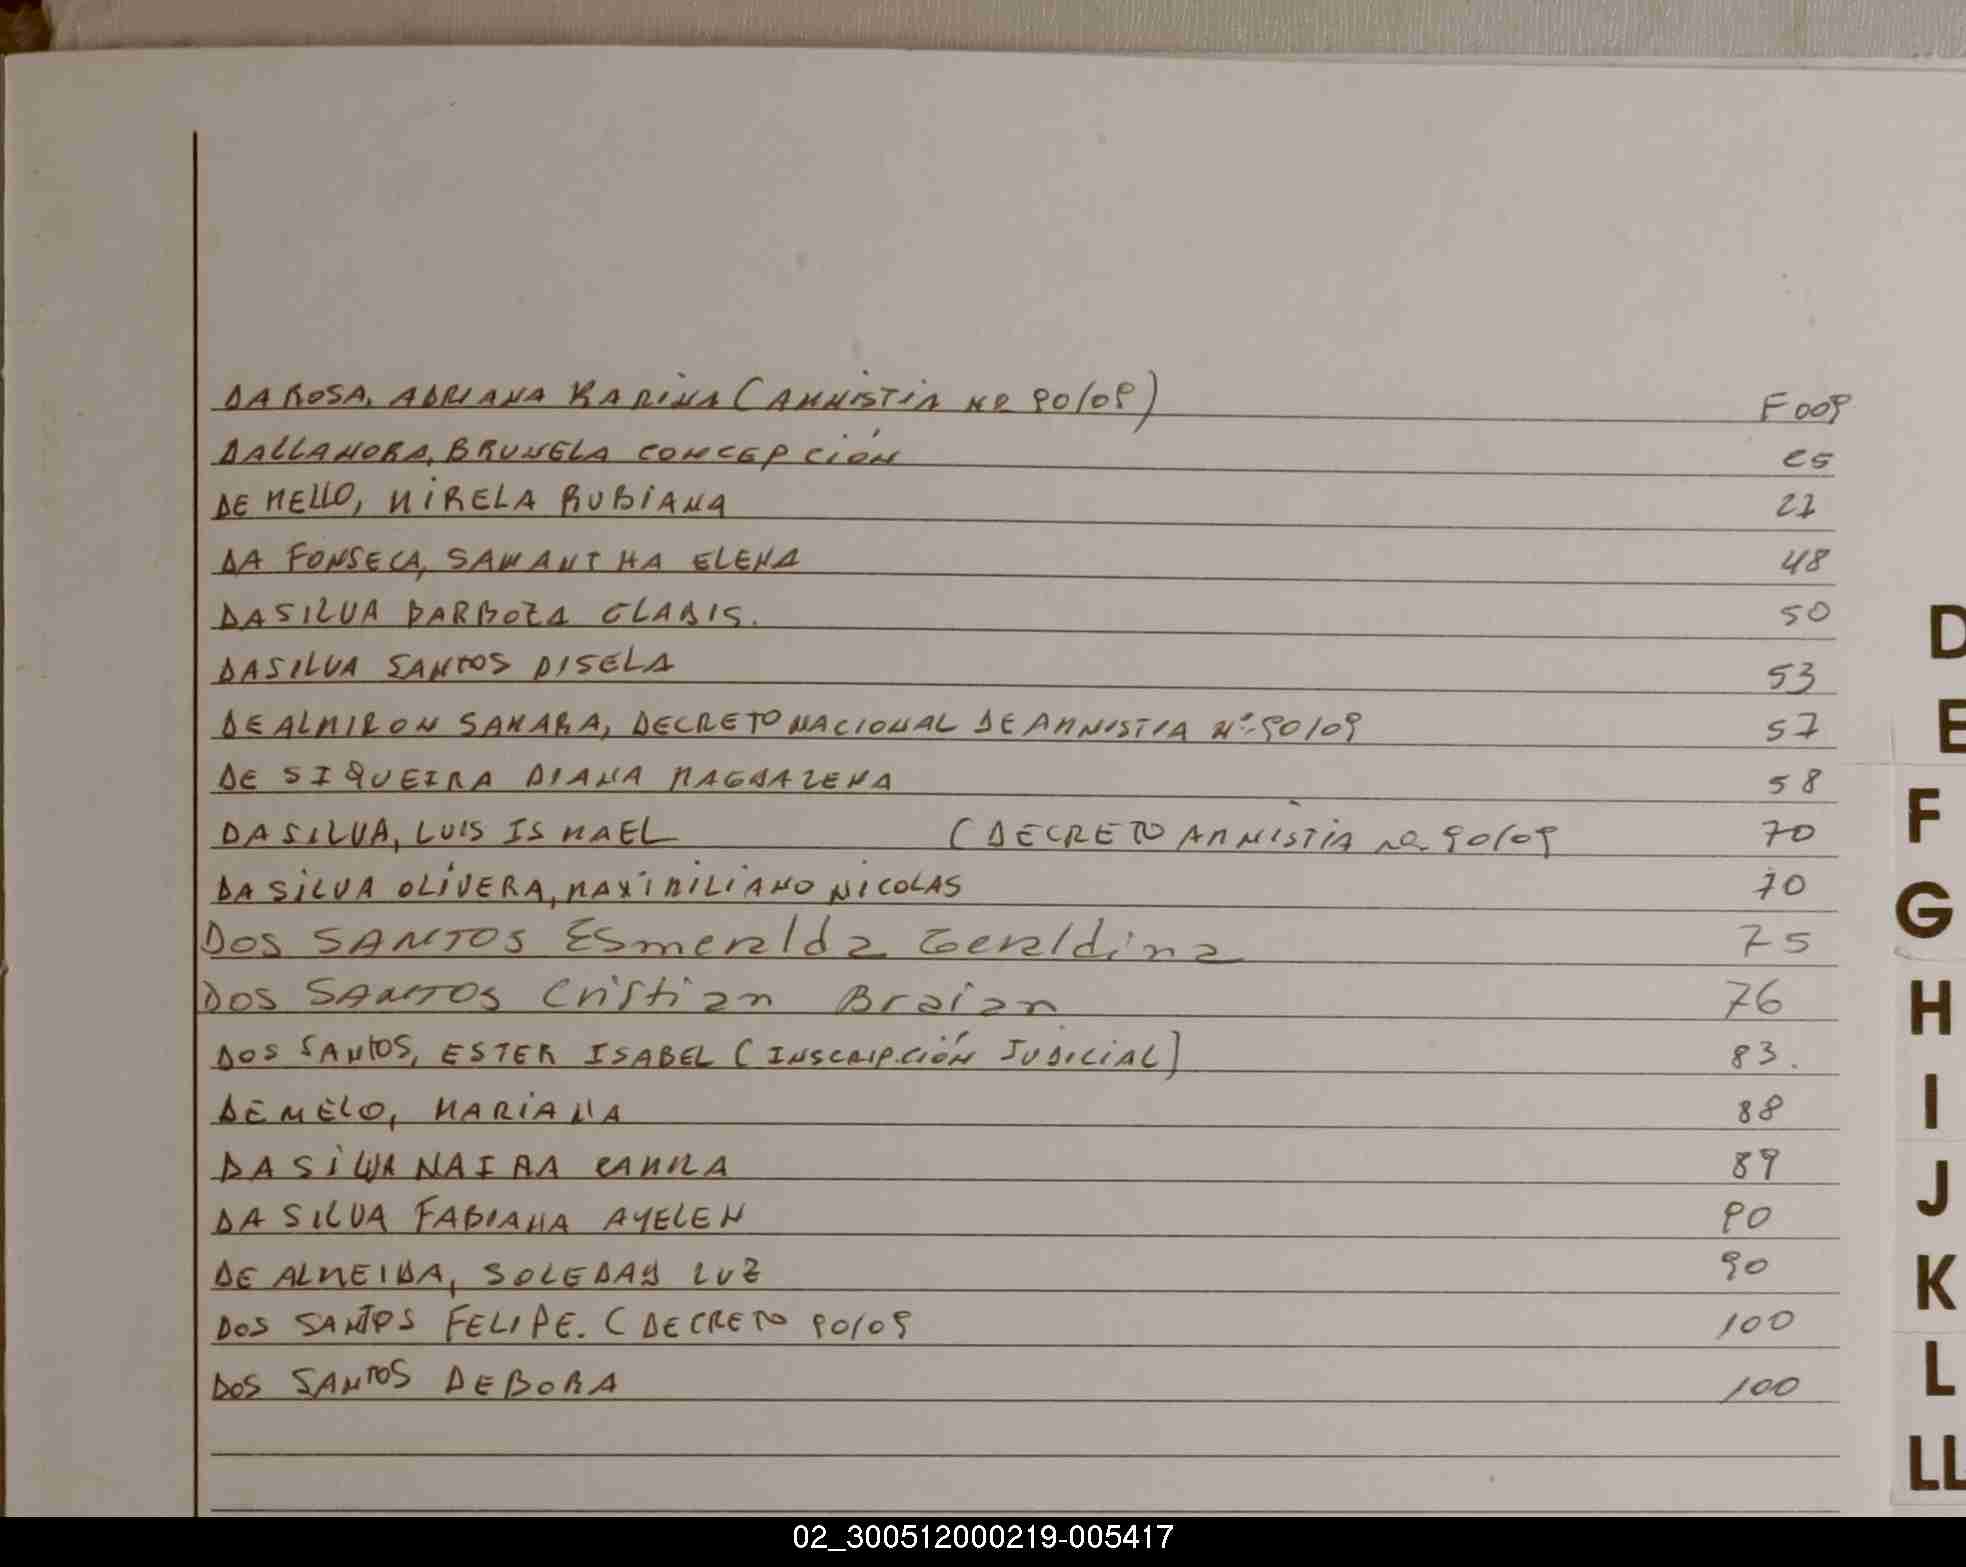 DA ROSA, ADRIANA KARINA (AMNISTIA Nº 90/09) F 009
DALLANORA, BRUNELA CONCEPCIÓN 25
DE MELLO, MIRELA RUBIANA 27
DA FONSECA, SAMANTHA ELENA 48
DASILVA BARBOZA GLADIS. 50
DASILVA SANTOS DISELA 53
DE ALMIRON SAMARA, DECRETO NACIONAL DE AMNISTIA Nº 90/09 57
DE SIQUEIRA DIANA MAGDALENA 58
DASILVA, LUIS ISMAEL (DECRETO AMNISTIA Nº 90/09 70
DA SILVA OLIVERA, MAXIMILIANO NICOLAS 70
DOS SANTOS Esmeralda Geraldina 75
DOS SANTOS Cristian Braian 76
DOS SANTOS, ESTER ISABEL (INSCRIPCIÓN JUDICIAL) 83.
DE MELO, MARIANA 88
DA SILVA NAIRA 89
DA SILVA FABIANA AYELEN 90
DE ALMEIDA, SOLEDAD LUZ 90
DOS SANTOS FELIPE. (DECRETO 90/09 100
DOS SANTOS DEBORA 100
D
E
F
G
H
I
J
K
L
LL
02_300512000219-005417